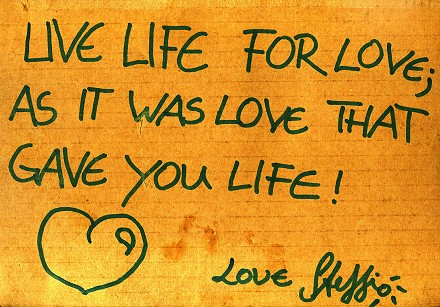 LIVE LIFE FOR LOVE;
AS IT WAS LOVE THAT
GAVE YOU LIFE!
LOVE Steffi